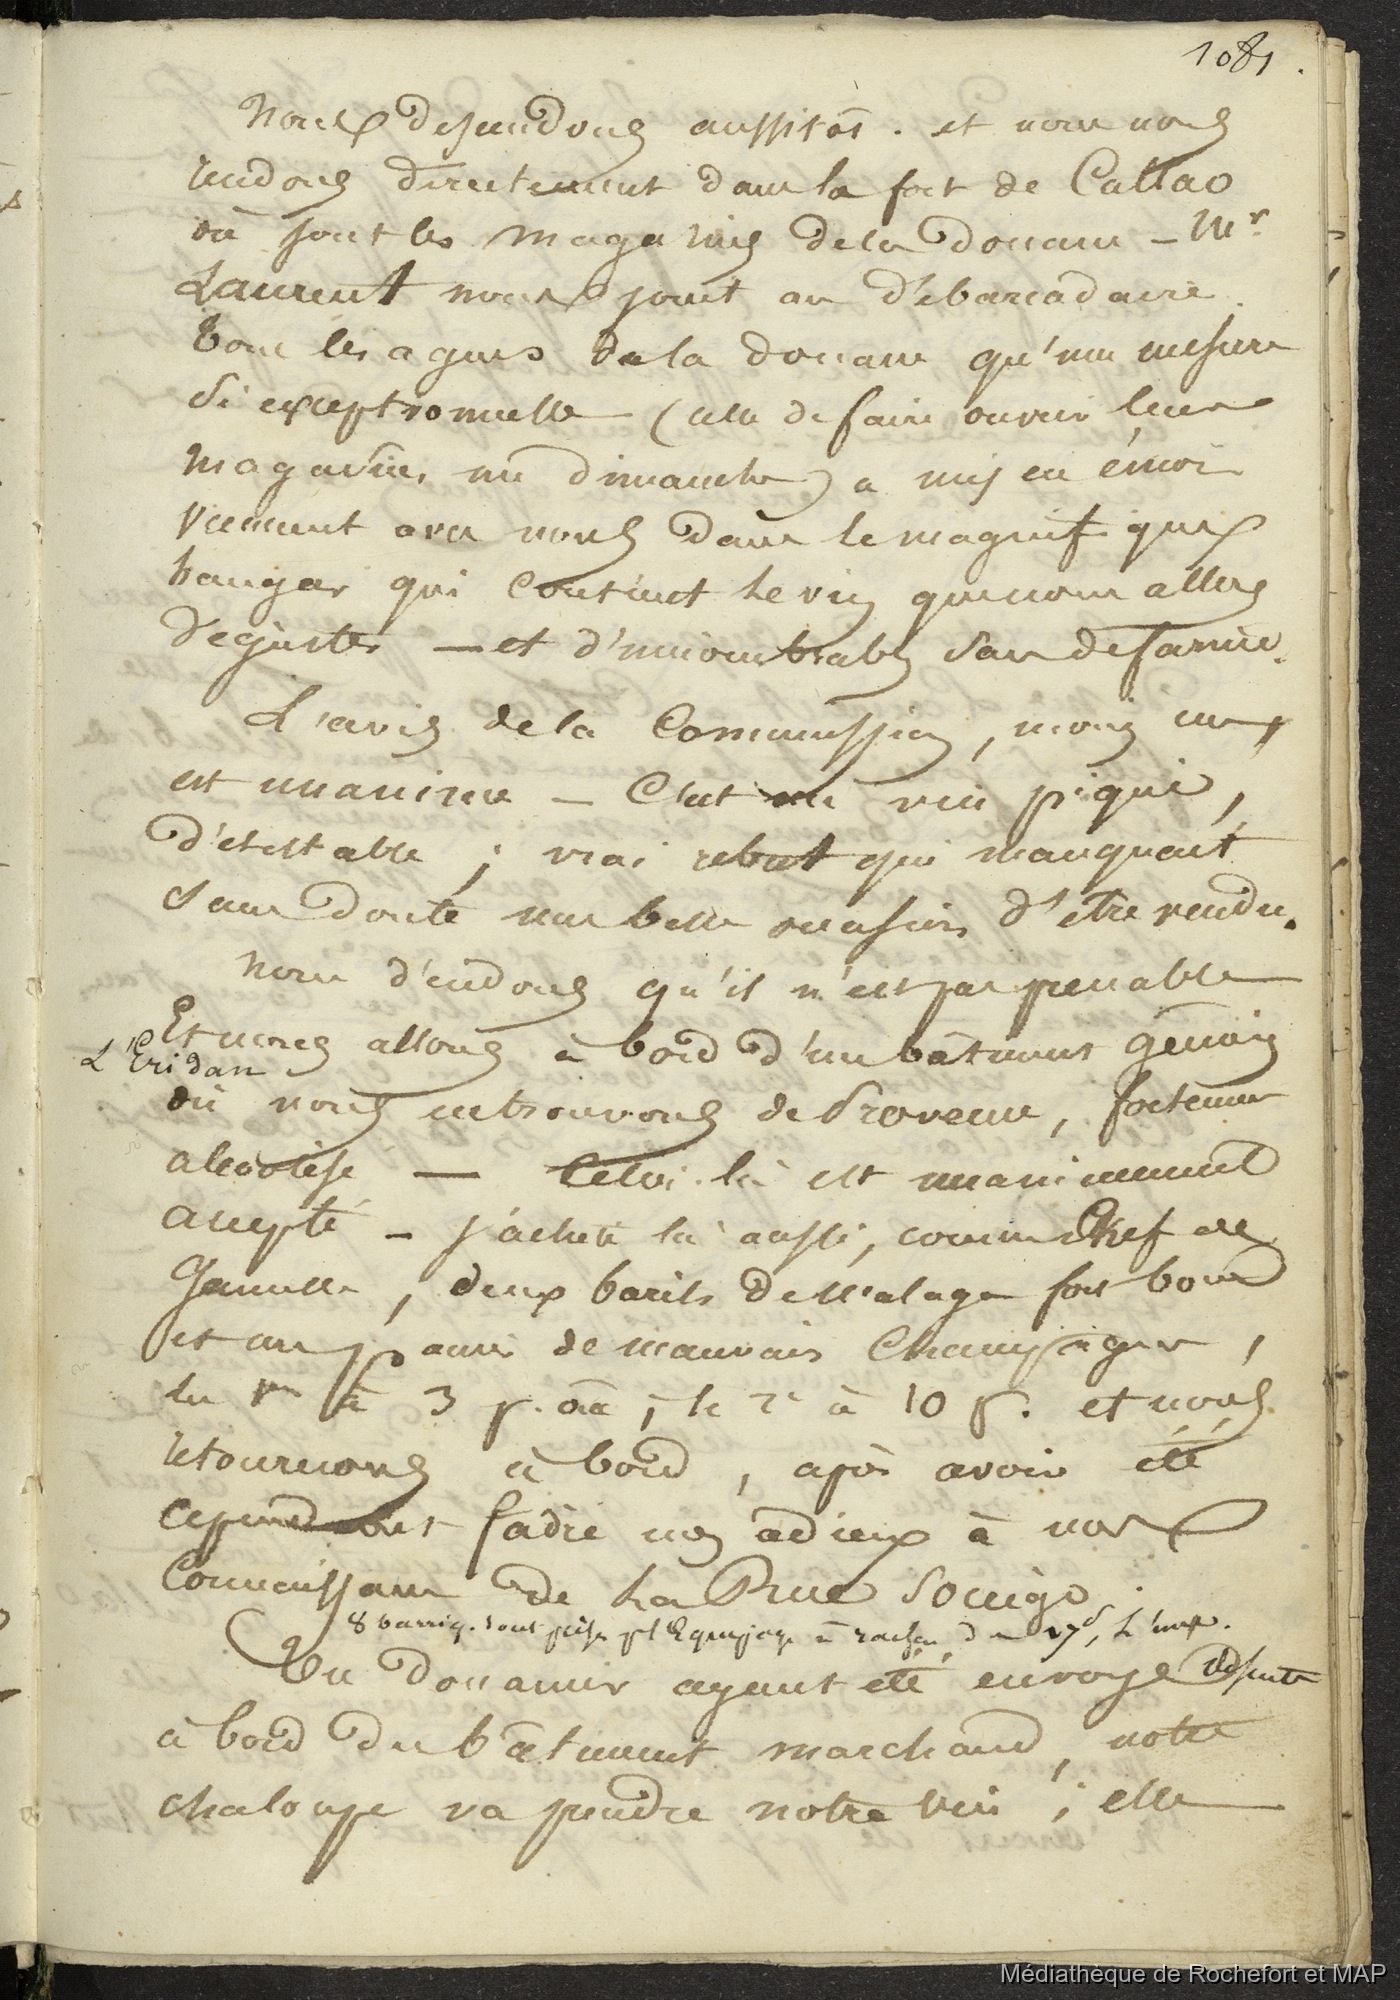 1081.
Nous descendons aussitôt. et nous nous
rendons directement dans le fort de Callao
où sont les magasins de la Douane - Mr
Laurent nous joint au d'ébarcadaire.
Tous les agens de la douane qu'une mesure
si exceptionnelle (celle de faire ouvrir leurs
magasins un dimanche) a mis en émoi
viennent avec nous dans le magnifique
hangar qui contient le vin que nous allons
déguster — et d'innombrables sacs de farine.
L'avis de la Commission, moins un,
est unanime — C'est un vin piqué,
d'étestable ; vrai rebut qui manquait
sans doute une belle occasion d'être vendu.
Nous d'écidons qu'il n'est pas prenable
Et nous allons à bord d'un bâtiment génois
L'Eridan
où nous en trouvons de Provence, fortement
alcoolisé — Celui-là est unanimement
accepté - j'achète là aussi, comme Chef de
Gamelle, deux barils de Malaga fort bons
et un panier de mauvais Champagne,
les 1ers à 3 p. ; le 2e à 10 p. et nous
retournons à bord, après avoir été
cependant faire nos adieux à nos
Connaissances de la Rue
8 barriq. sont prises pr l'Equipage à
Un Douanier ayant été envoyé
à bord du bâtiment marchand, notre
chaloupe va prendre notre vin ; elle
Médiathèque de Rochefort et MAP